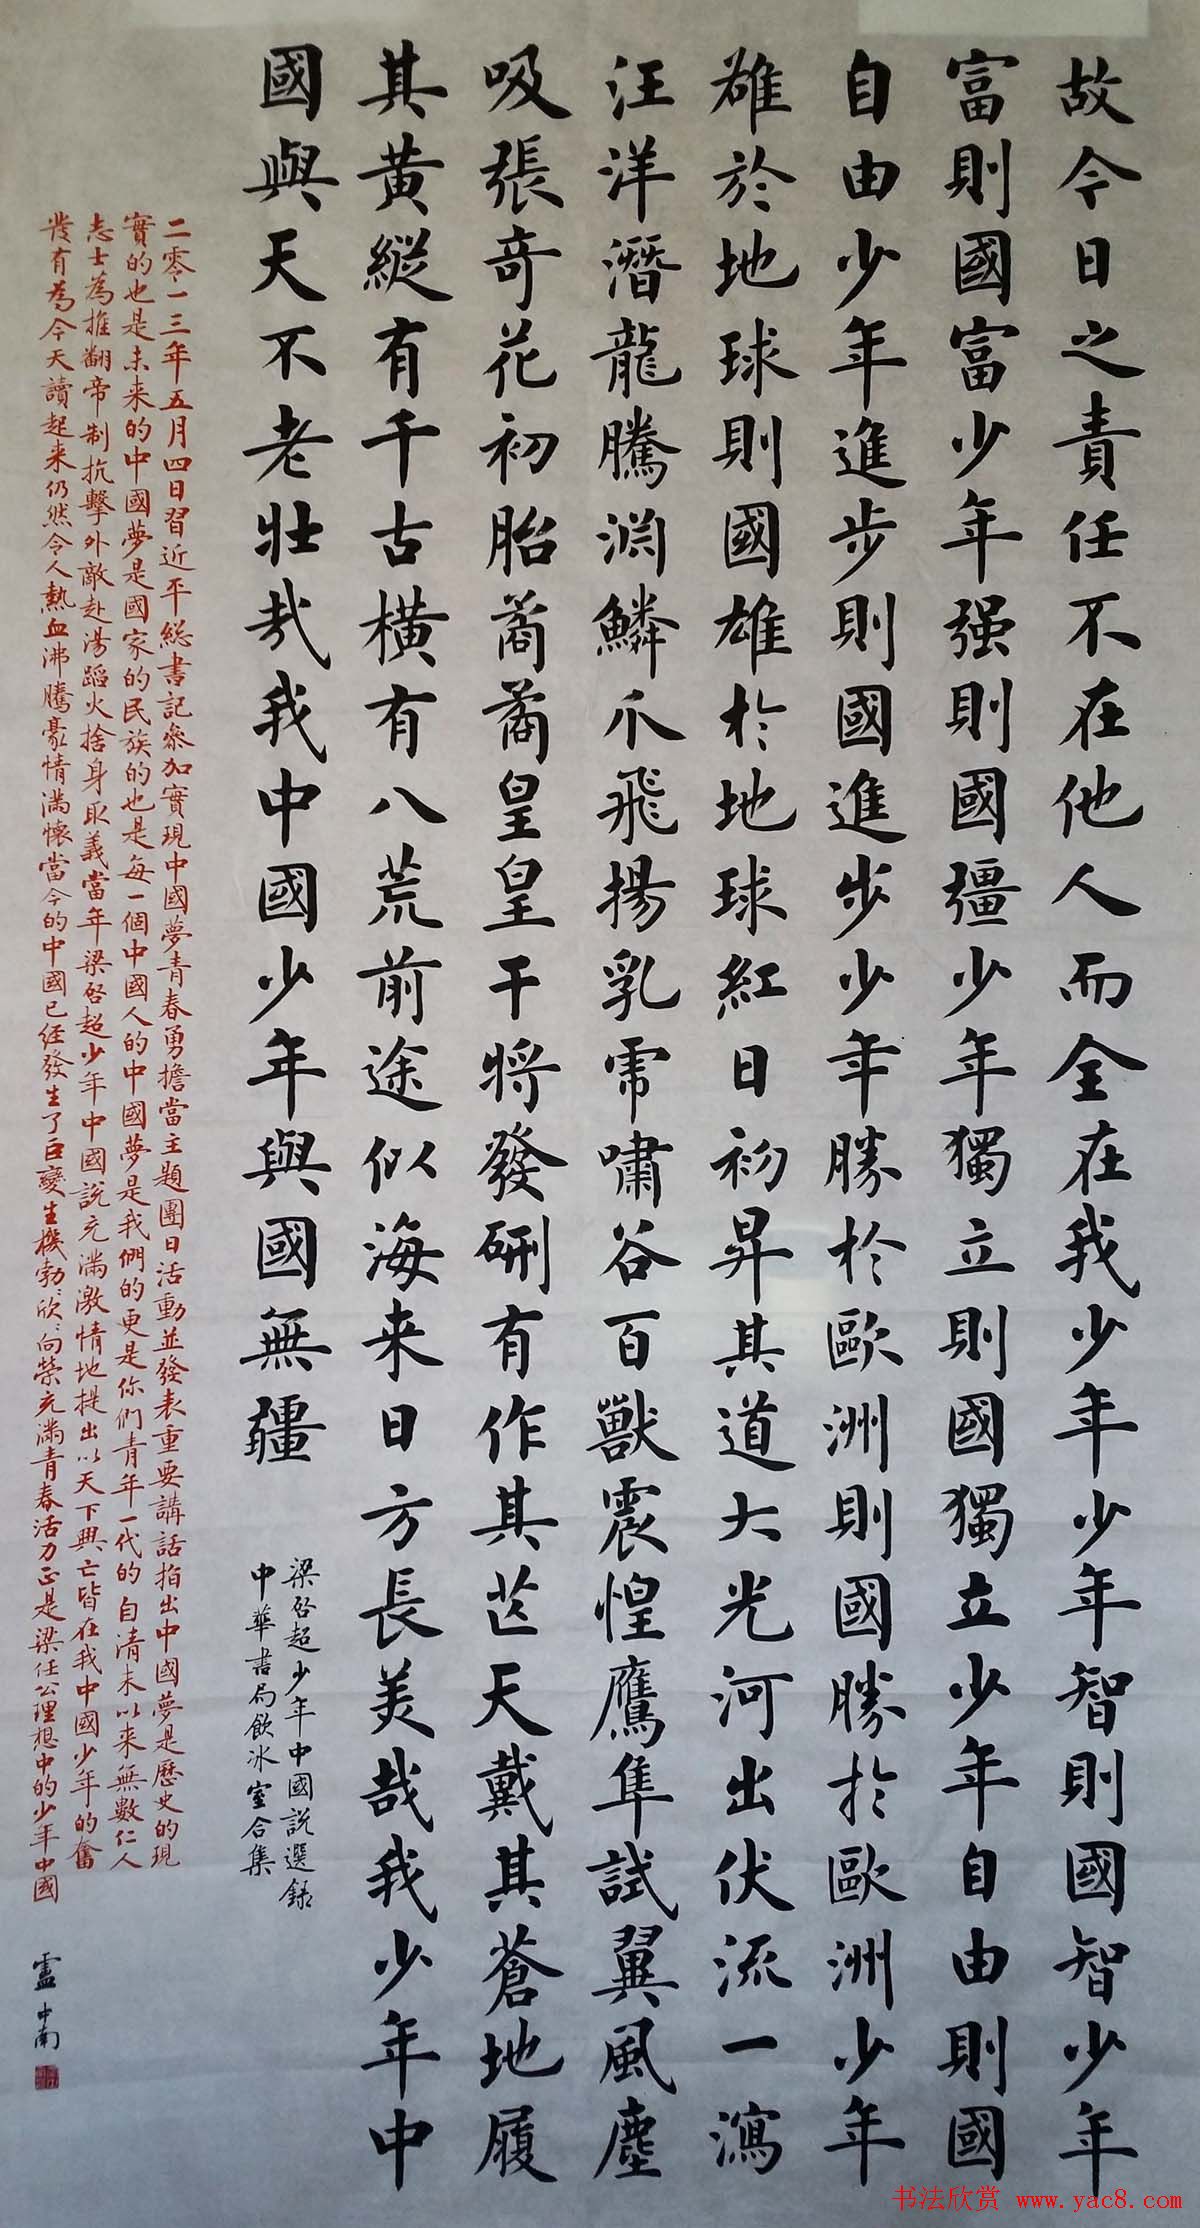 故今日之責任不在他人而全在我少年少年智則國智少年
富則國富少年强則國彊少年獨立則國獨立少年自由則國
自由少年進步則國進步少年勝於歐洲則國勝於歐洲少年
雄於地球則國雄於地球紅日初昇其道大光河出伏流一瀉
汪洋潛龍騰淵鱗爪飛揚乳虎嘯谷百獸震惶鷹隼試翼風塵
吸張奇花初胎矞矞皇皇干將發硎有作其芒天戴其蒼地履
其黄縱有千古橫有八荒前途似海来日方長美哉我少年中
國與天不老壯哉我中國少年與國無疆
梁啓超少年中國説選録
中華書局飲冰室合集
二零一三年五月四日習近平總書記參加實現中國夢青春勇擔當主題團日活動並發表重要講話指出中國夢是歷史的現
實的也是未来的中國夢是國家的民族的也是每一個中國人的中國夢是我們的更是你們青年一代的自清末以来無數仁人
志士為推翻帝制抗擊外敵赴湯蹈火捨身取義當年梁啓超少年中國説充滿激情地提出以天下興亡皆在我中國少年的奮
發有為今天讀起来仍然令人熱血沸騰豪情滿懷當今的中國已經發生了巨變生機勃勃欣欣向榮充滿青春活力正是梁任公理想中的少年中國
盧中南
书法欣赏 www.yac8.com